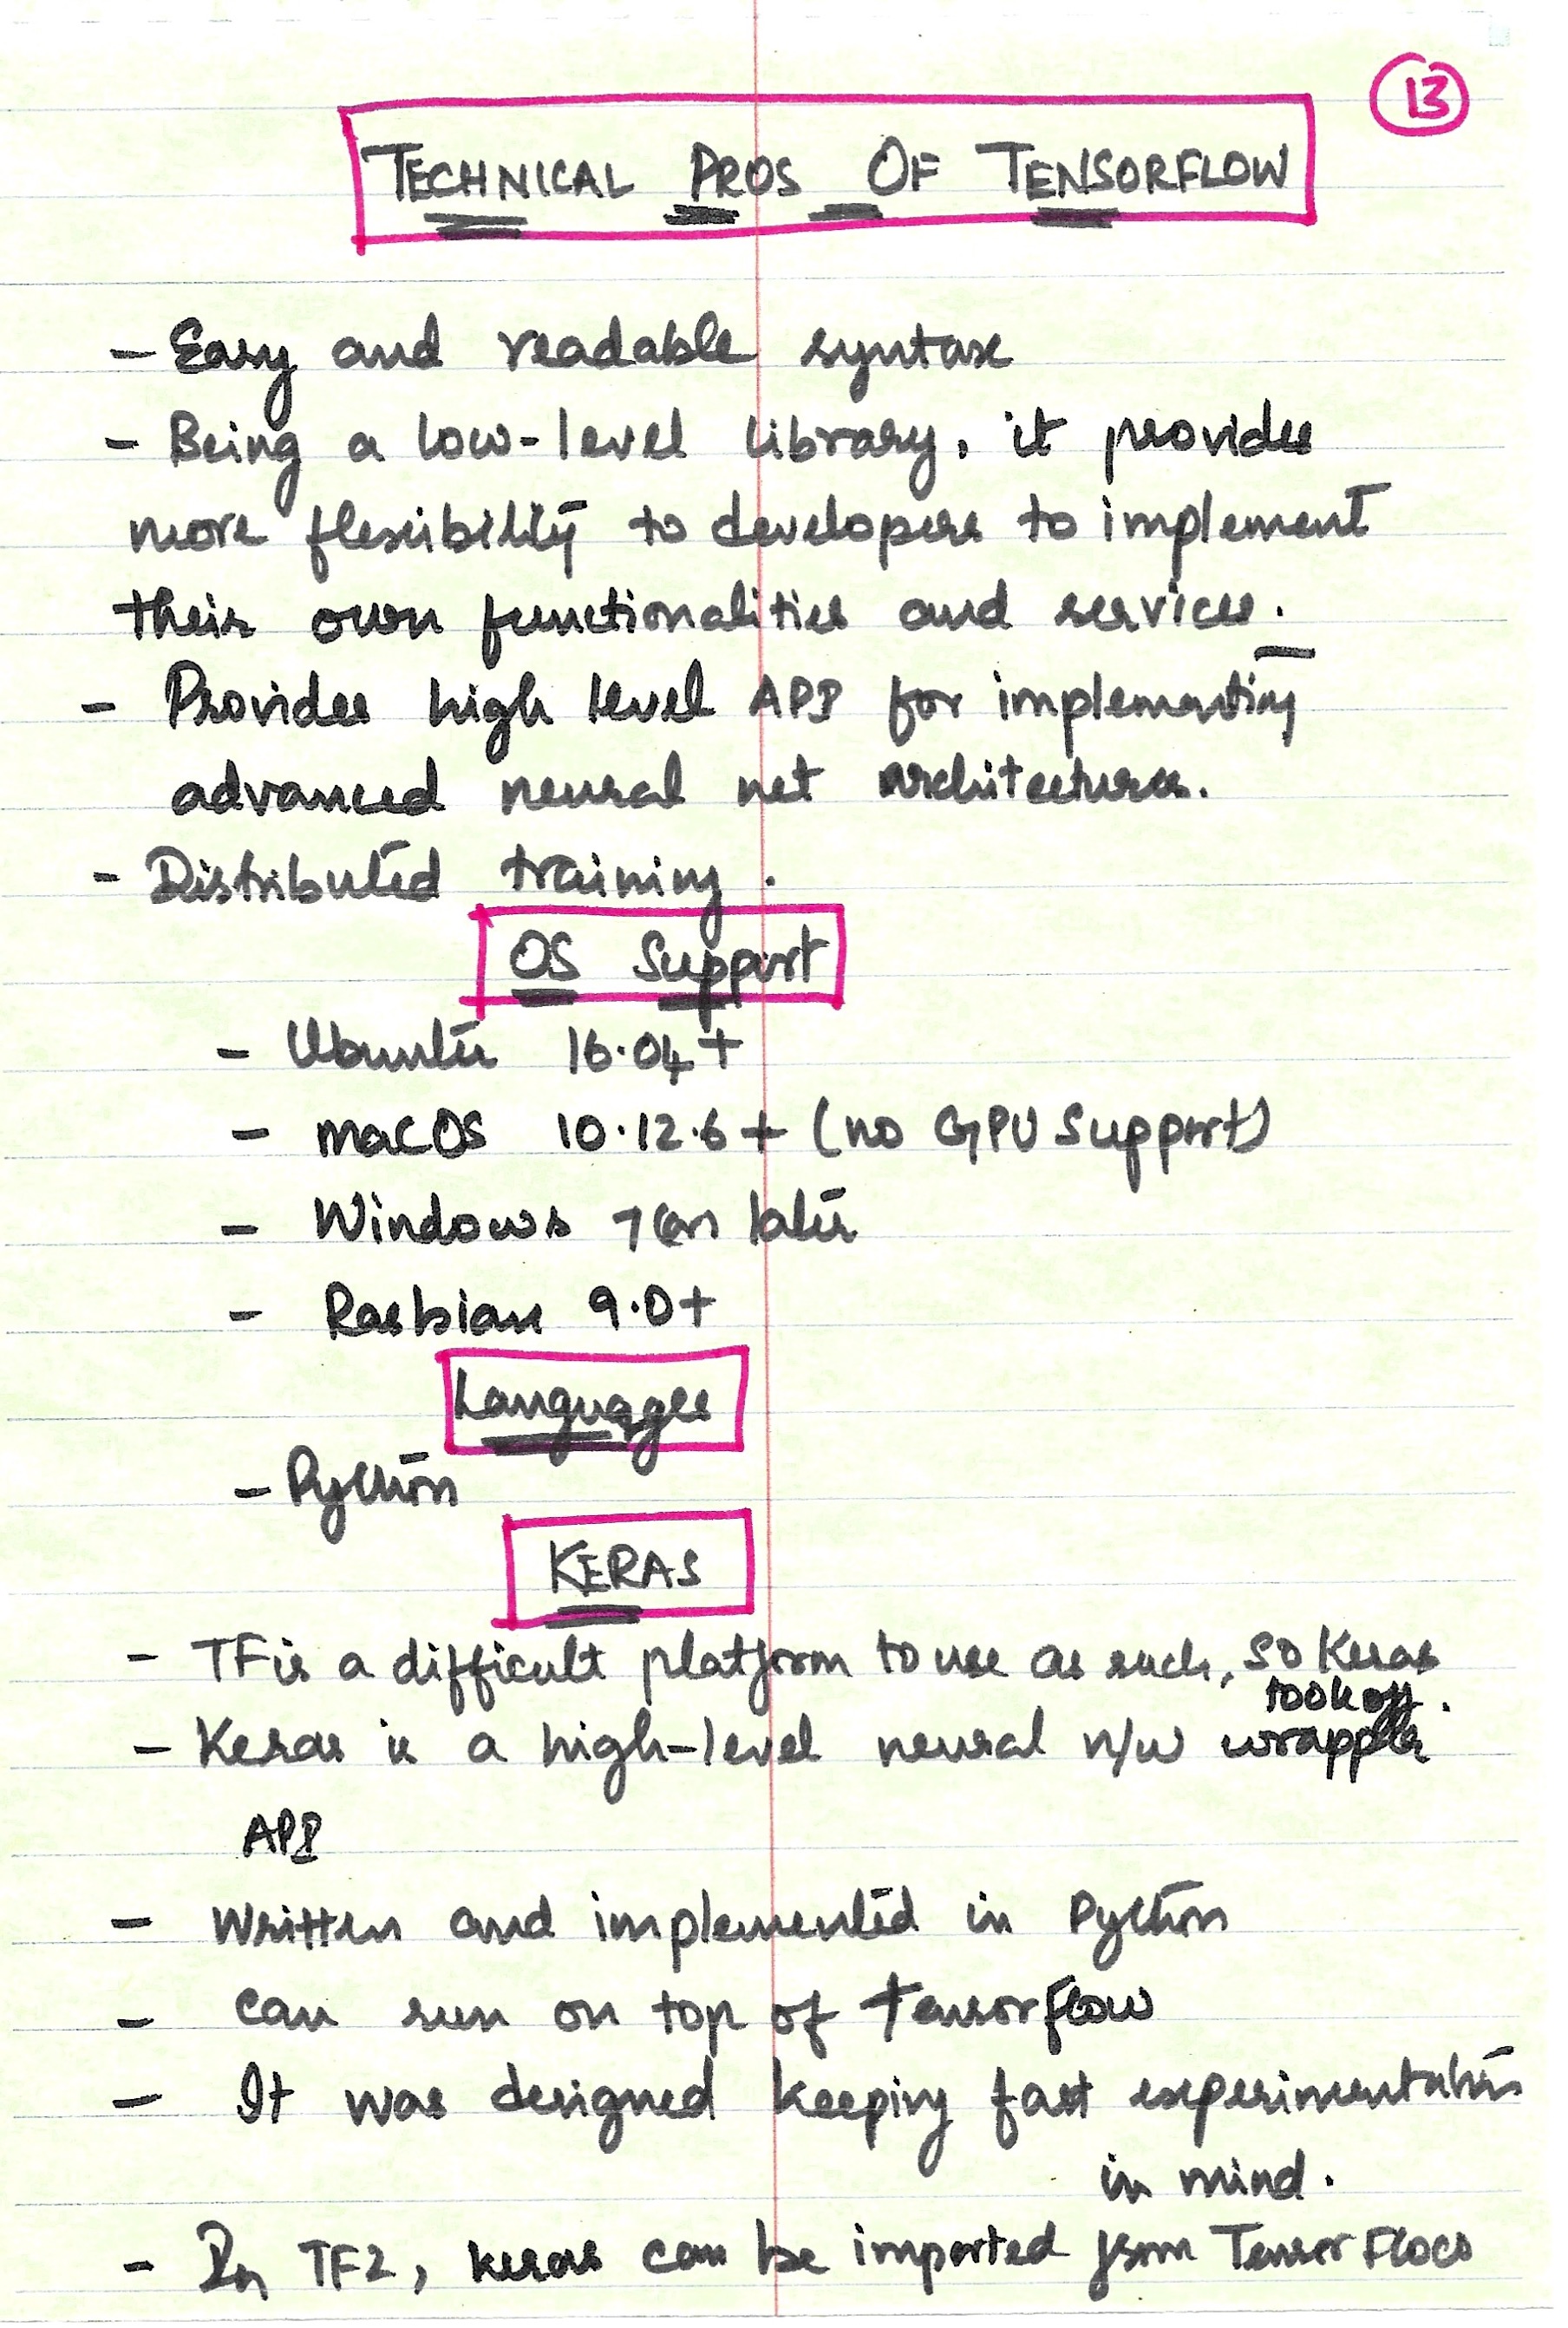 13
TECHNICAL PROS OF TENSORFLOW
- Easy and readable syntax
- Being a low-level library, it provides
more flexibility to developers to implement
their own functionalities and services.
- Provides high level API for implementing
advanced neural net architectures.
- Distributed training.
OS Support
- Ubuntu 16.04+
- macOS 10.12.6+ (no GPU Support)
- Windows 7 or later
- Rasbian 9.0+
Languages
- Python
KERAS
- TF is a difficult platform to use as such, so Keras
took off.
- Keras is a high-level neural n/w wrapper
API
- Written and implemented in Python
- can run on top of Tensorflow
- It was designed keeping fast experimentation
in mind.
- In TF2, keras can be imported from TensorFlow